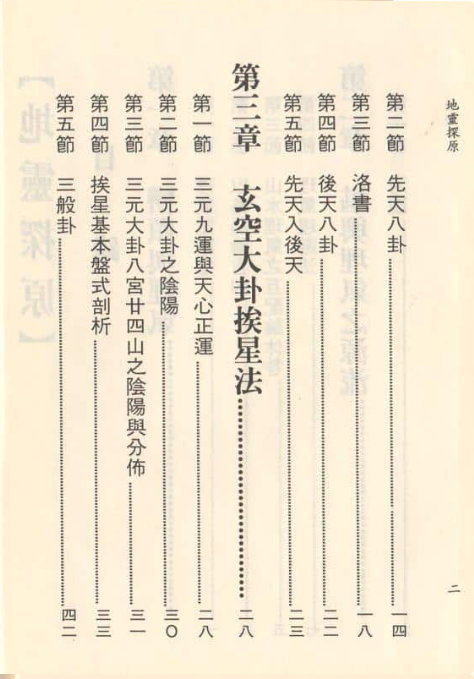 地靈探原
二
第二節 先天八卦 一四
第三節 洛書 一八
第四節 後天八卦 二二
第五節 先天入後天 二三
第三章 玄空大卦挨星法 二八
第一節 三元九運與天心正運 二八
第二節 三元大卦之陰陽 三〇
第三節 三元大卦八宮廿四山之陰陽與分佈 三一
第四節 挨星基本盤式剖析 三三
第五節 三般卦 四二